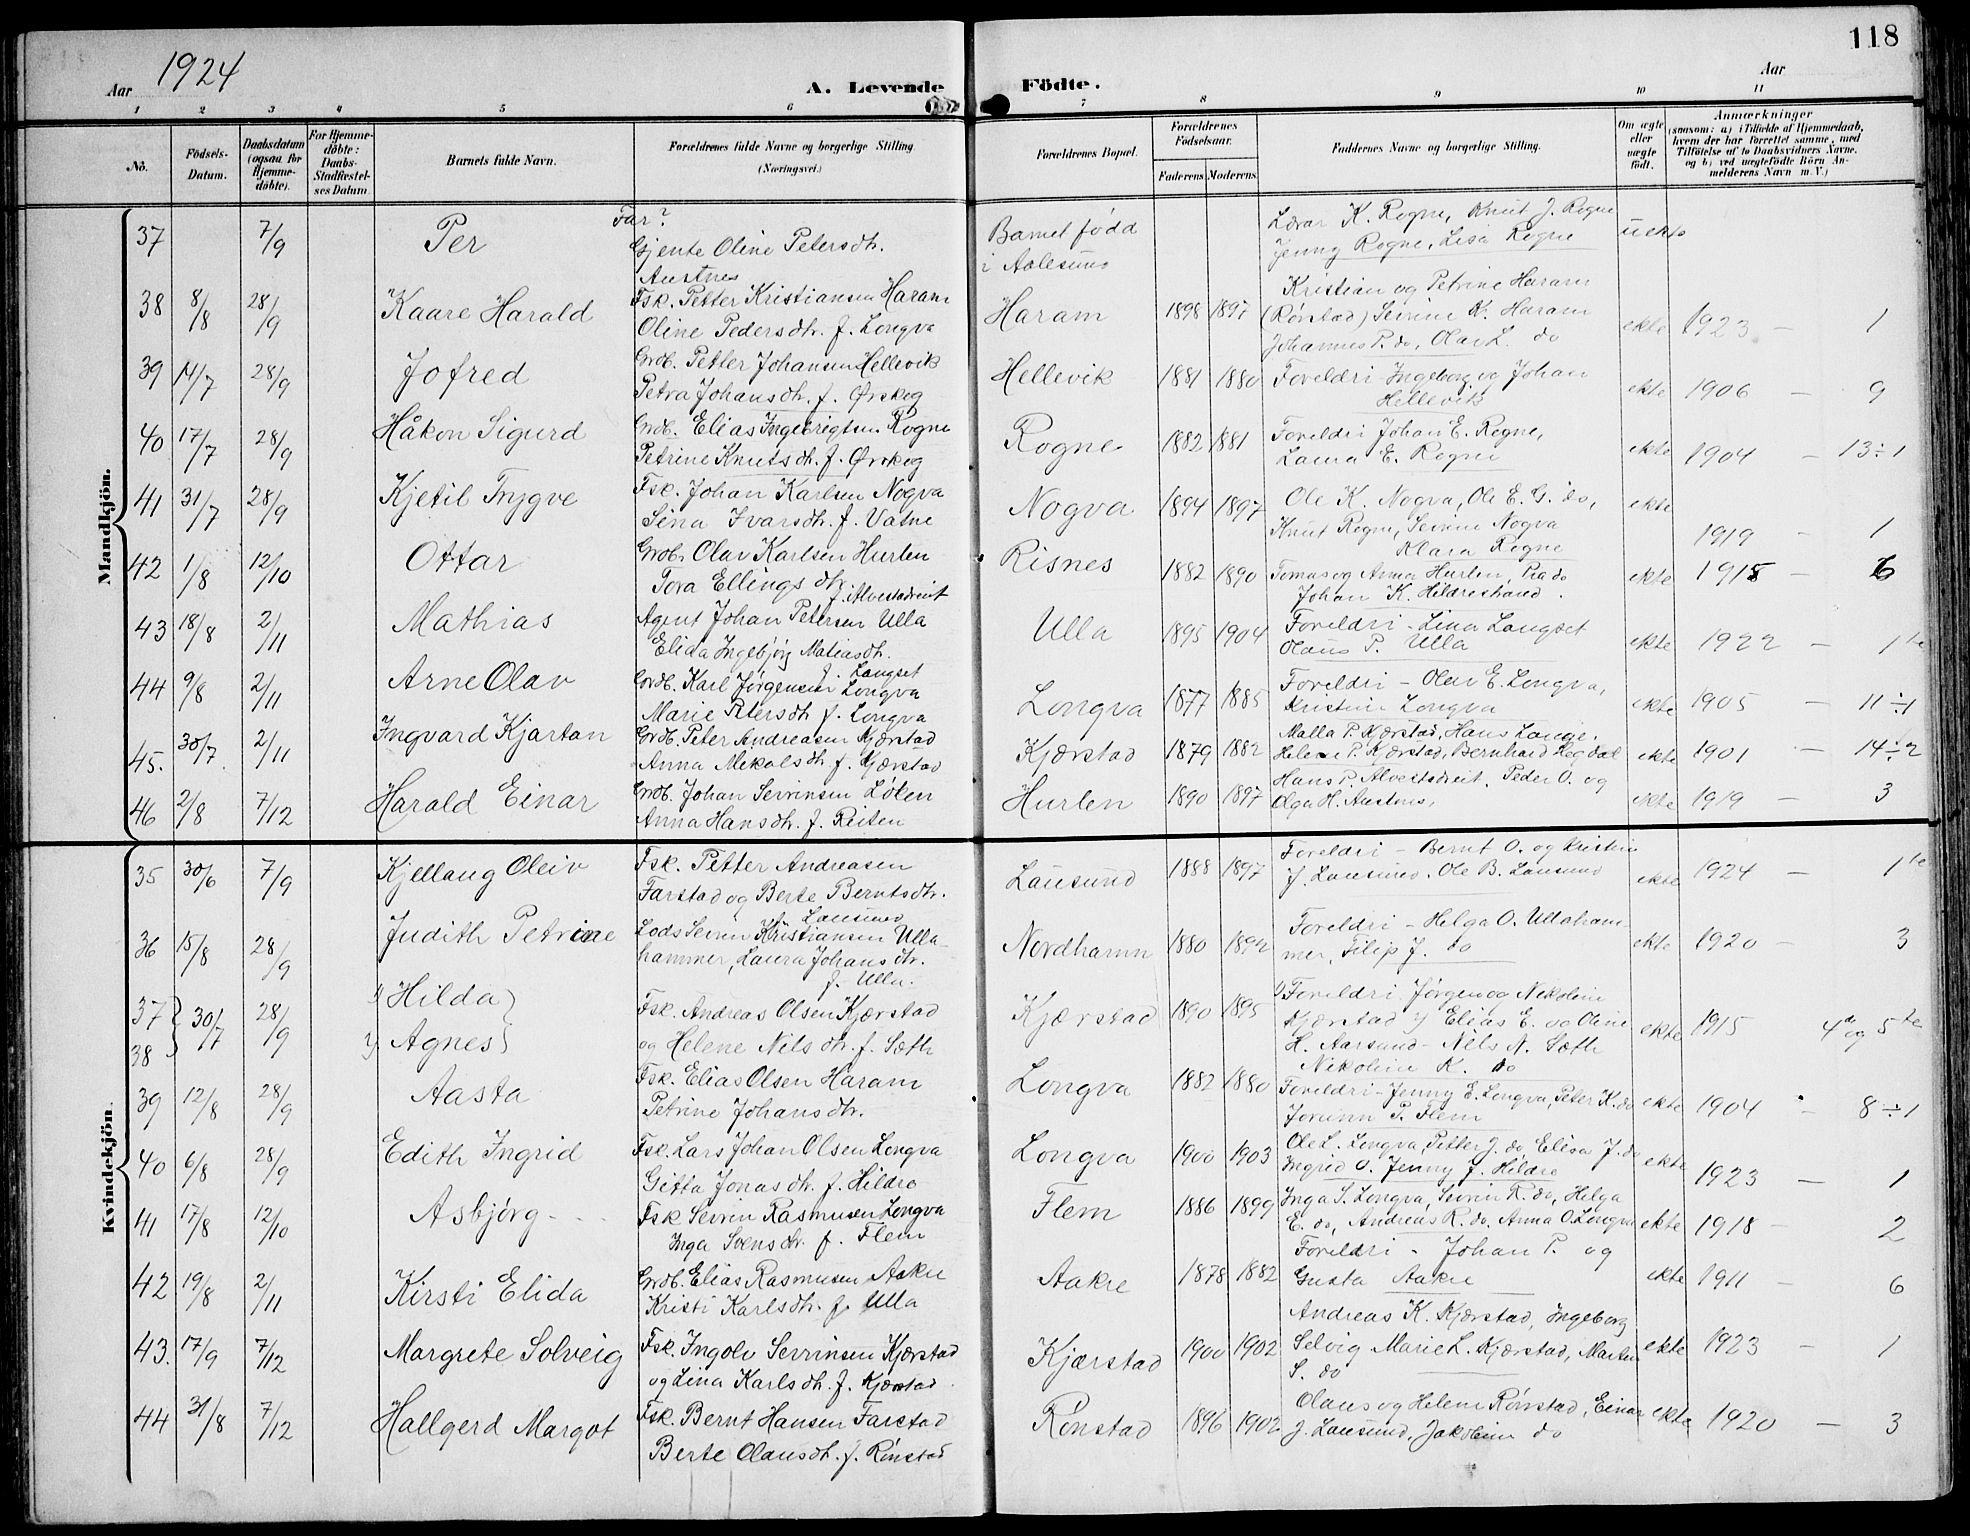 118
Aar 1924
A. Levende Födte.
Aar
1 2 3 4 5 6 7 8 9 10 11
No. Födsels-Datum. Daabsdatum (ogsaa for Hjemme-döbte). For Hjemme-döbte: Daabs-Stadfæstel-ses Datum Barnets fulde Navn. Forældrenes fulde Navne og borgerlige Stilling. (Næringsvei.) Forældrenes Bopæl. Forældrenes Födselsaar. Faderens Moderens Faddernes Navne og borgerlige Stilling. Om ægte eller uægte födt. Anmærkninger (saasom: a) i Tilfælde af Hjemmedaab, hvem der har forrettet samme, med Tilföielse af to Daabsvidners Navne. og b) ved uægtefödte Börn An-melderens Navn m. V.)
Mandkjön.
Far?
37 7/9 Per Gjente Oline Petersdtr. Barnet fødd Lærar K. Rogne, Knut J. Rogne uekte
Austnes i Aalesund Jenny Rogne, Lisa Rogne
38 8/8 28/9 Kaare Harald Fsk. Petter Kristiansen Haram Haram 1898 1897 Kristian og Petrine Haram
Oline Pedersdtr. f. Longva (Rønstad) Sevrine K. Haram ekte 1923 – 1
Johannes P. do, Olav L. do
39 14/7 28/9 Jofred Grdb. Petter Johansen Hellevik Hellevik 1881 1880 Foreldri Ingeborg og Johan ekte 1906 – 9
Petra Johansdtr. f. Ørskog Hellevik
40 17/7 28/9 Håkon Sigurd Grdb. Elias Ingebrigtsen Rogne Rogne 1882 1881 Foreldri Johan E. Rogne, ekte 1904 – 13÷1
Petrine Knutsdtr. f. Ørskog Laura E. Rogne
41 31/7 28/9 Kjetil Trygve Fsk. Johan Karlsen Nogva Nogva 1894 1897 Ole K. Nogva, Ole E. G. do, ekte
Sina Ivarsdtr. f. Vatne Knut Rogne, Sevrine Nogva 1919 – 1
Klara Rogne
42 1/8 12/10 Ottar Grdb. Olav Karlsen Hurlen Risnes 1882 1890 Tomas og Anna Hurlen, Pia do ekte 1915 – 6
Tora Ellingsdtr. f. Alvestadreit Johan K. Hildrestrand.
43 18/8 2/11 Mathias Agent Johan Petersen Ulla Ulla 1895 1904 Foreldri – Lina Langset ekte 1922 – 1te
Elida Ingebjørg Matiasdtr. f. Langset Olaus P. Ulla
44 9/8 2/11 Arne Olav Grdb. Karl Jørgensen Longva Longva 1877 1885 Foreldri – Olav E. Longva, ekte 1905 – 11÷1
Marie Petersdtr f. Longva Kristine Longva
45. 30/7 2/11 Ingvard Kjartan Grdb. Peter Andreasen Kjærstad Kjærstad 1879 1882 Malla P. Kjærstad, Hans Longe. ekte 1901 – 14÷2
Anna Mekalsdtr. f. Kjærstad Helene P. Kjærstad, Bernhard Hegdal
46 2/8 7/12 Harald Einar Grdb. Johan Sevrinsen Løken Hurlen 1890 1897 Hans P. Alvestadreit, Peder O. og ekte 1919 – 3
Anna Hansdtr. f. Reiten Olga H. Austnes,
Kvindekjön.
35 30/6 7/9 Kjellaug Oleiv Fsk. Petter Andreasen Lausund 1888 1897 Foreldri – Bernt O. og Kristine ekte 1924 – 1te
Farstad og Berte Berntsdtr. f. Lausund J. Lausund. Ole B. Lausund
36 15/8 28/9 Judith Petrine Lods Sevrin Kristiansen Ulla- Nordhamn 1880 1892 Foreldri – Helga O. Ullaham- ekte 1920 – 3
hammer, Laura Johansdtr. f. Ulla. mer, Filip J. do
37 38 30/7 28/9 1) Hilda Fsk. Andreas Olsen Kjærstad Kjærstad 1890 1895 1) Foreldri Jørgen og Nekoline ekte 1915 4de og 5te
2) Agnes og Helene Nilsdtr. f. Sæth Kjærstad 2) Elias E. og Oline
H. Aarsund – Nils N. Sæth
Nikoline K. do
39 12/8 28/9 Aasta Fsk. Elias Olsen Haram Longva 1882 1880 Foreldri – Jenny E. Longva, Peter K. do ekte 1904 – 8÷1
Petrine Johansdtr. Jorunn P. Flem
40 6/8 28/9 Edith Ingrid Fsk. Lars Johan Olsen Longva Longva 1900 1903 Ole L. Longva, Petter J. do, Elisa J. do ekte 1923 – 1
Gitta Jonasdtr. f. Hildre Ingrid O. Jenny J. Hildre
41 17/8 12/10 Asbjørg Fsk Sevrin Rasmusen Longva Flem 1886 1899 Inga S. Longva, Sevrin R. do, Helga ekte 1918 – 2
Inga Svensdtr. f. Flem E. do, Andreas R. do. Anna O. Longva
42 19/8 2/11 Kirsti Elida Grdb. Elias Rasmusen Aakre Aakre 1878 1882 Foreldri – Johan P. og ekte 1911 – 6
Kristi Karlsdtr. f. Ulla Gusta Aakre
43. 17/9 7/12 Margrete Solveig Fsk. Ingolv Sevrinsen Kjærstad Kjærstad 1900 1902 Andreas K. Kjærstad, Ingeborg ekte 1923 – 1
og Lina Karlsdtr. f. Kjærstad Selvig Marie L. Kjærstad, Marten
S. do
44 31/8 7/12 Hallgerd Margot Fsk. Bernt Hansen Farstad Rønstad 1896 1902 Olaus og Helene Rønstad, Einar ekte 1920 – 3
Berte Olausdtr. f. Rønstad J. Lausund, Jakobine do